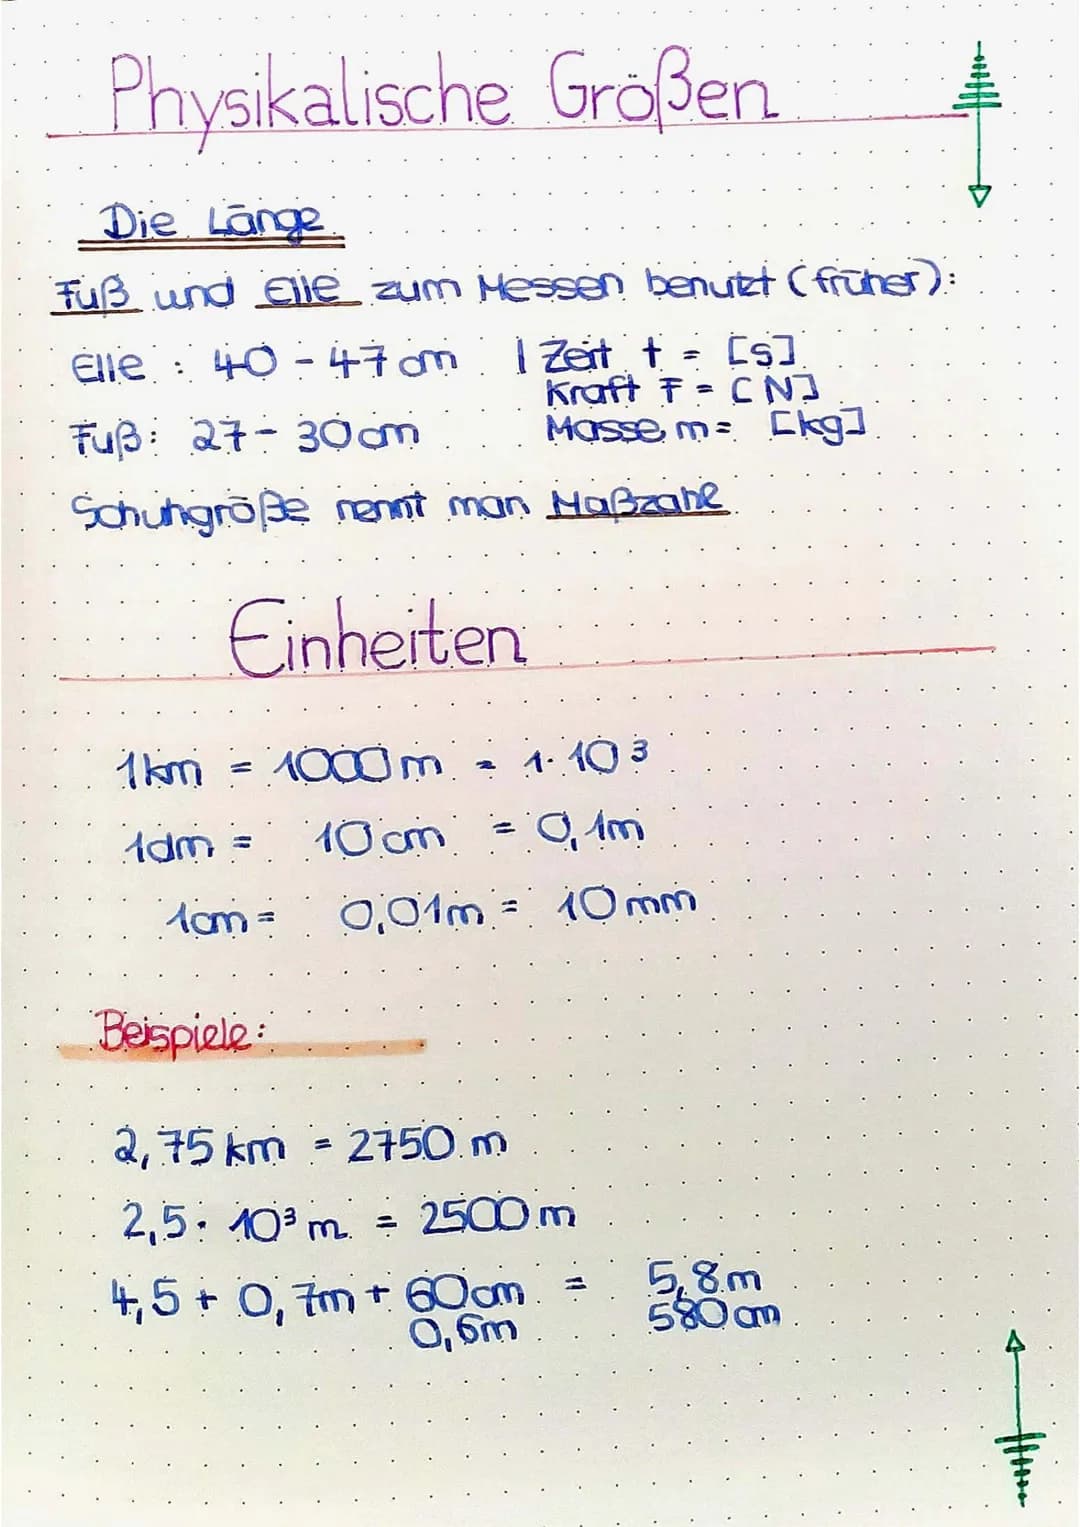 Physikalische Größen
Die Länge
Fuß und Elle zum Messen benutzt (früher):
Elle : 40 - 47cm | Zeit t = [s]
Kraft F = [N]
Fuß: 27 - 30cm Masse m = [kg]
Schuhgröße nennt man Maßzahl
Einheiten
1km = 1000m = 1·10³
1dm = 10cm = 0,1m
1cm = 0,01m = 10mm
Beispiele:
2,75km = 2750m
2,5· 10³m = 2500m
4,5 + 0,7m + 60cm = 5,8m
0,6m 580cm